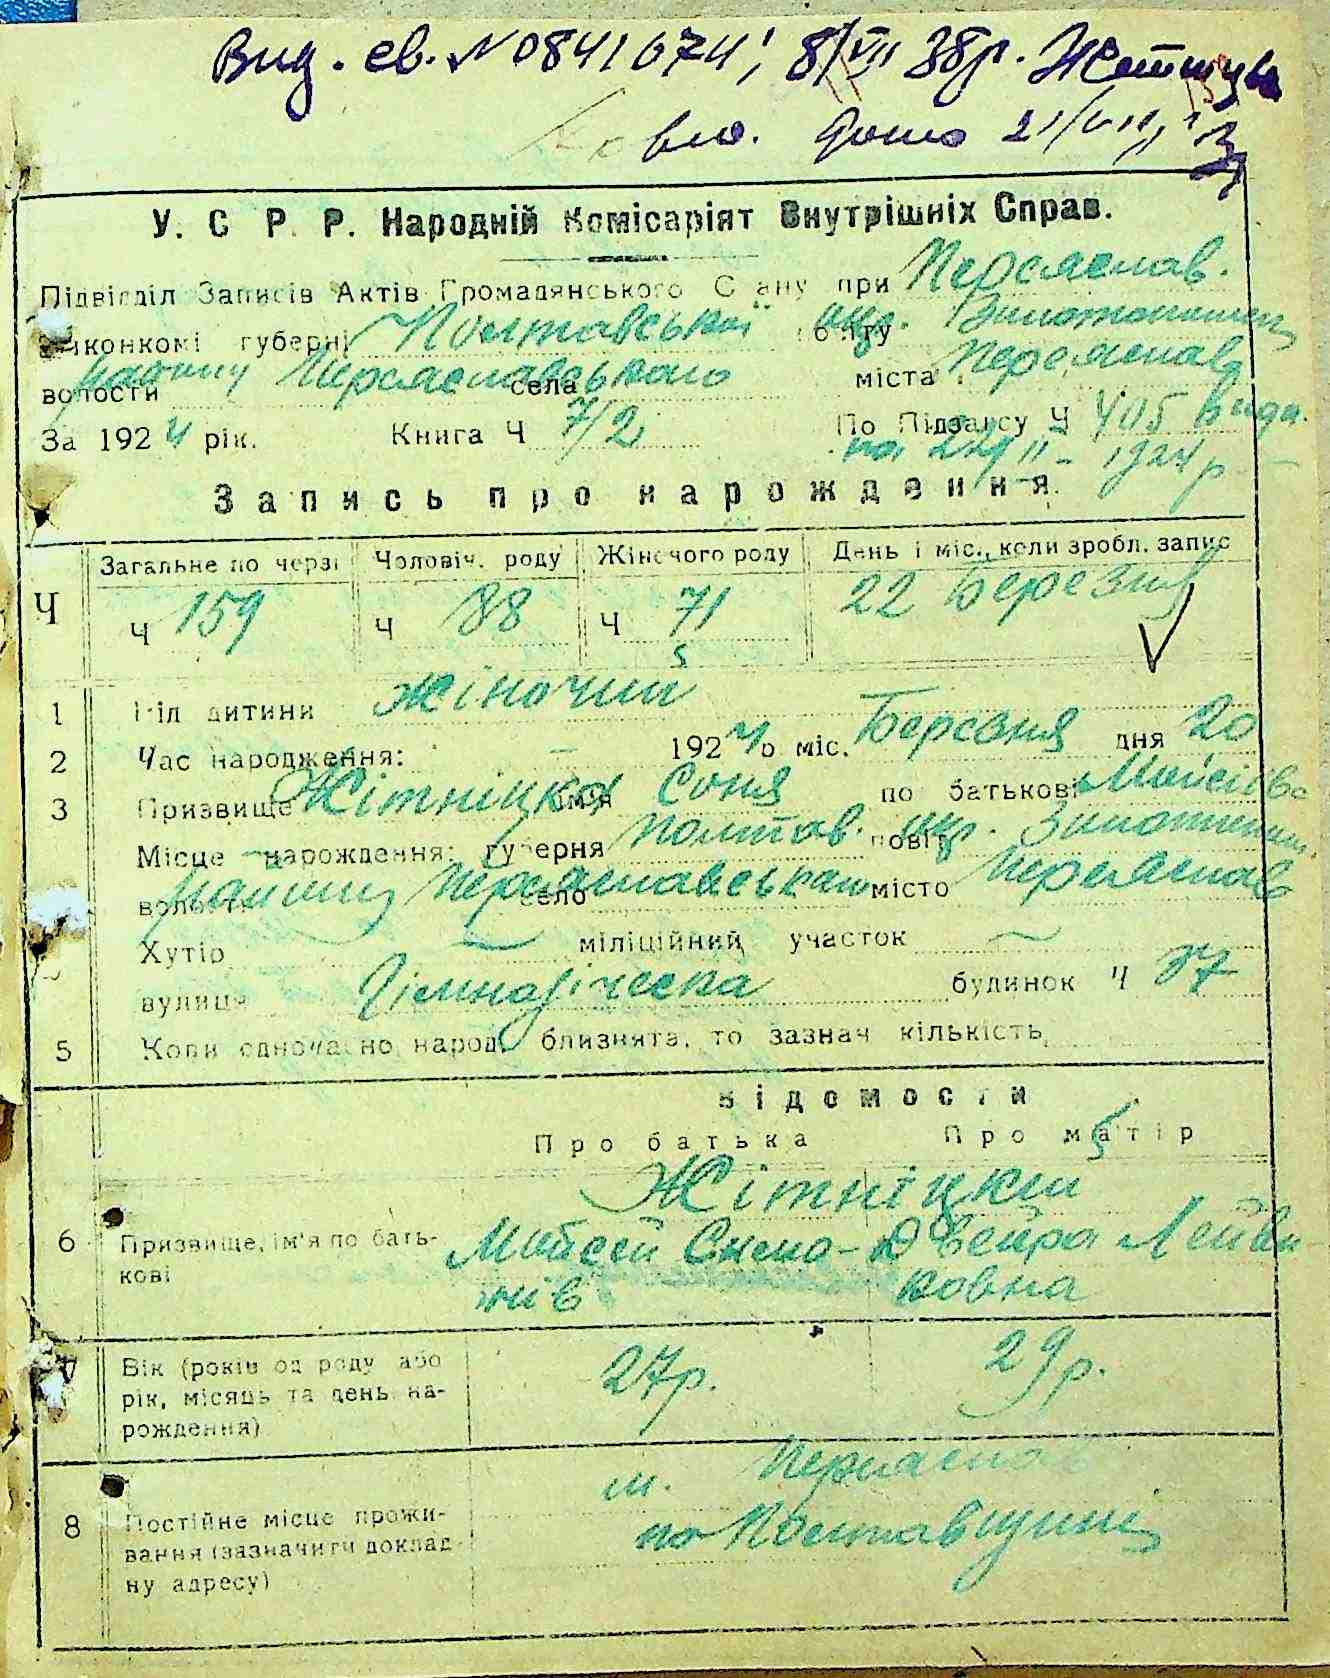 Вид. св. № 0841674, 8/VII 38р.
У. С. Р. Р. Народній Комісаріят Внутрішніх Справ.
Підвідділ Записів Актів Громадянського Стану при Переяслав.
виконкомі губерні Полтавської окр. Золотоношськ
волости району Переяславського села міста Переяслав
За 1924 рік. Книга Ч 7/2 По Підзагсу Ч 405 Вида.
на 22/II - 1924 р
Запись про нарождення
Загальне по черзі Чоловіч. роду Жіночого роду День і міс., коли зробл. запис
Ч Ч 159 Ч 88 Ч 71 22 Березня
1 Під дитини Жіночий
2 Час народження: — 1924 о міс. Березня дня 20
3 Призвище Жітніцка ім'я Соня по батькові Мойсіовс
Місце нарождення: губерня Полтав. окр. повіт Золотонош.
волость району Переяславського село місто Переяслав
Хутір — міліційний участок —
вулиця Гімназіческа будинок Ч 37
5 Коли одночасно народ. близнята, то зазнач кількість
Відомости
Про батька Про матір
Жітніцкі
6 Призвище, ім'я по бать-
кові
Мойсей Симо- Двейра Лейви
хів ковна
7 Вік (років од роду або
рік, місяць та день на-
рождення)
27р. 29р.
8 Постійне місце прожи-
вання (зазначити доклад
ну адресу)
м. Переяслав
на Полтавщині